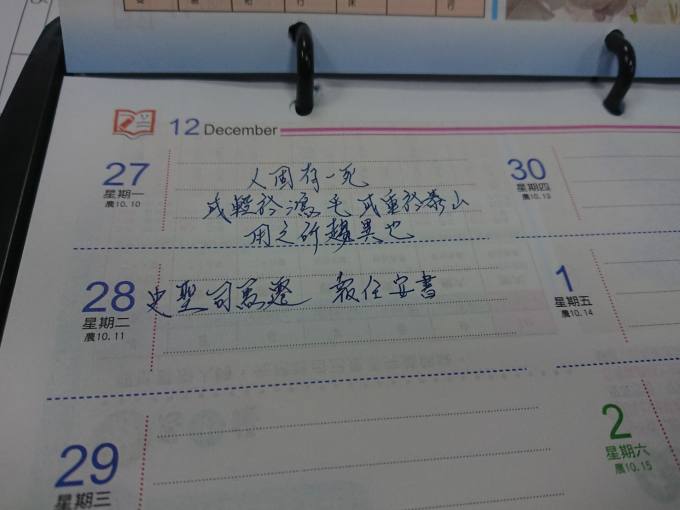 12 December
27
星期一
農10.10
人固有一死
或輕於鴻毛 或重於泰山
用之所趨異也
28
星期二
農10.11
史聖司馬遷 報任安書
29
星期三
30
星期四
農10.13
1
星期五
農10.14
2
星期六
農10.15